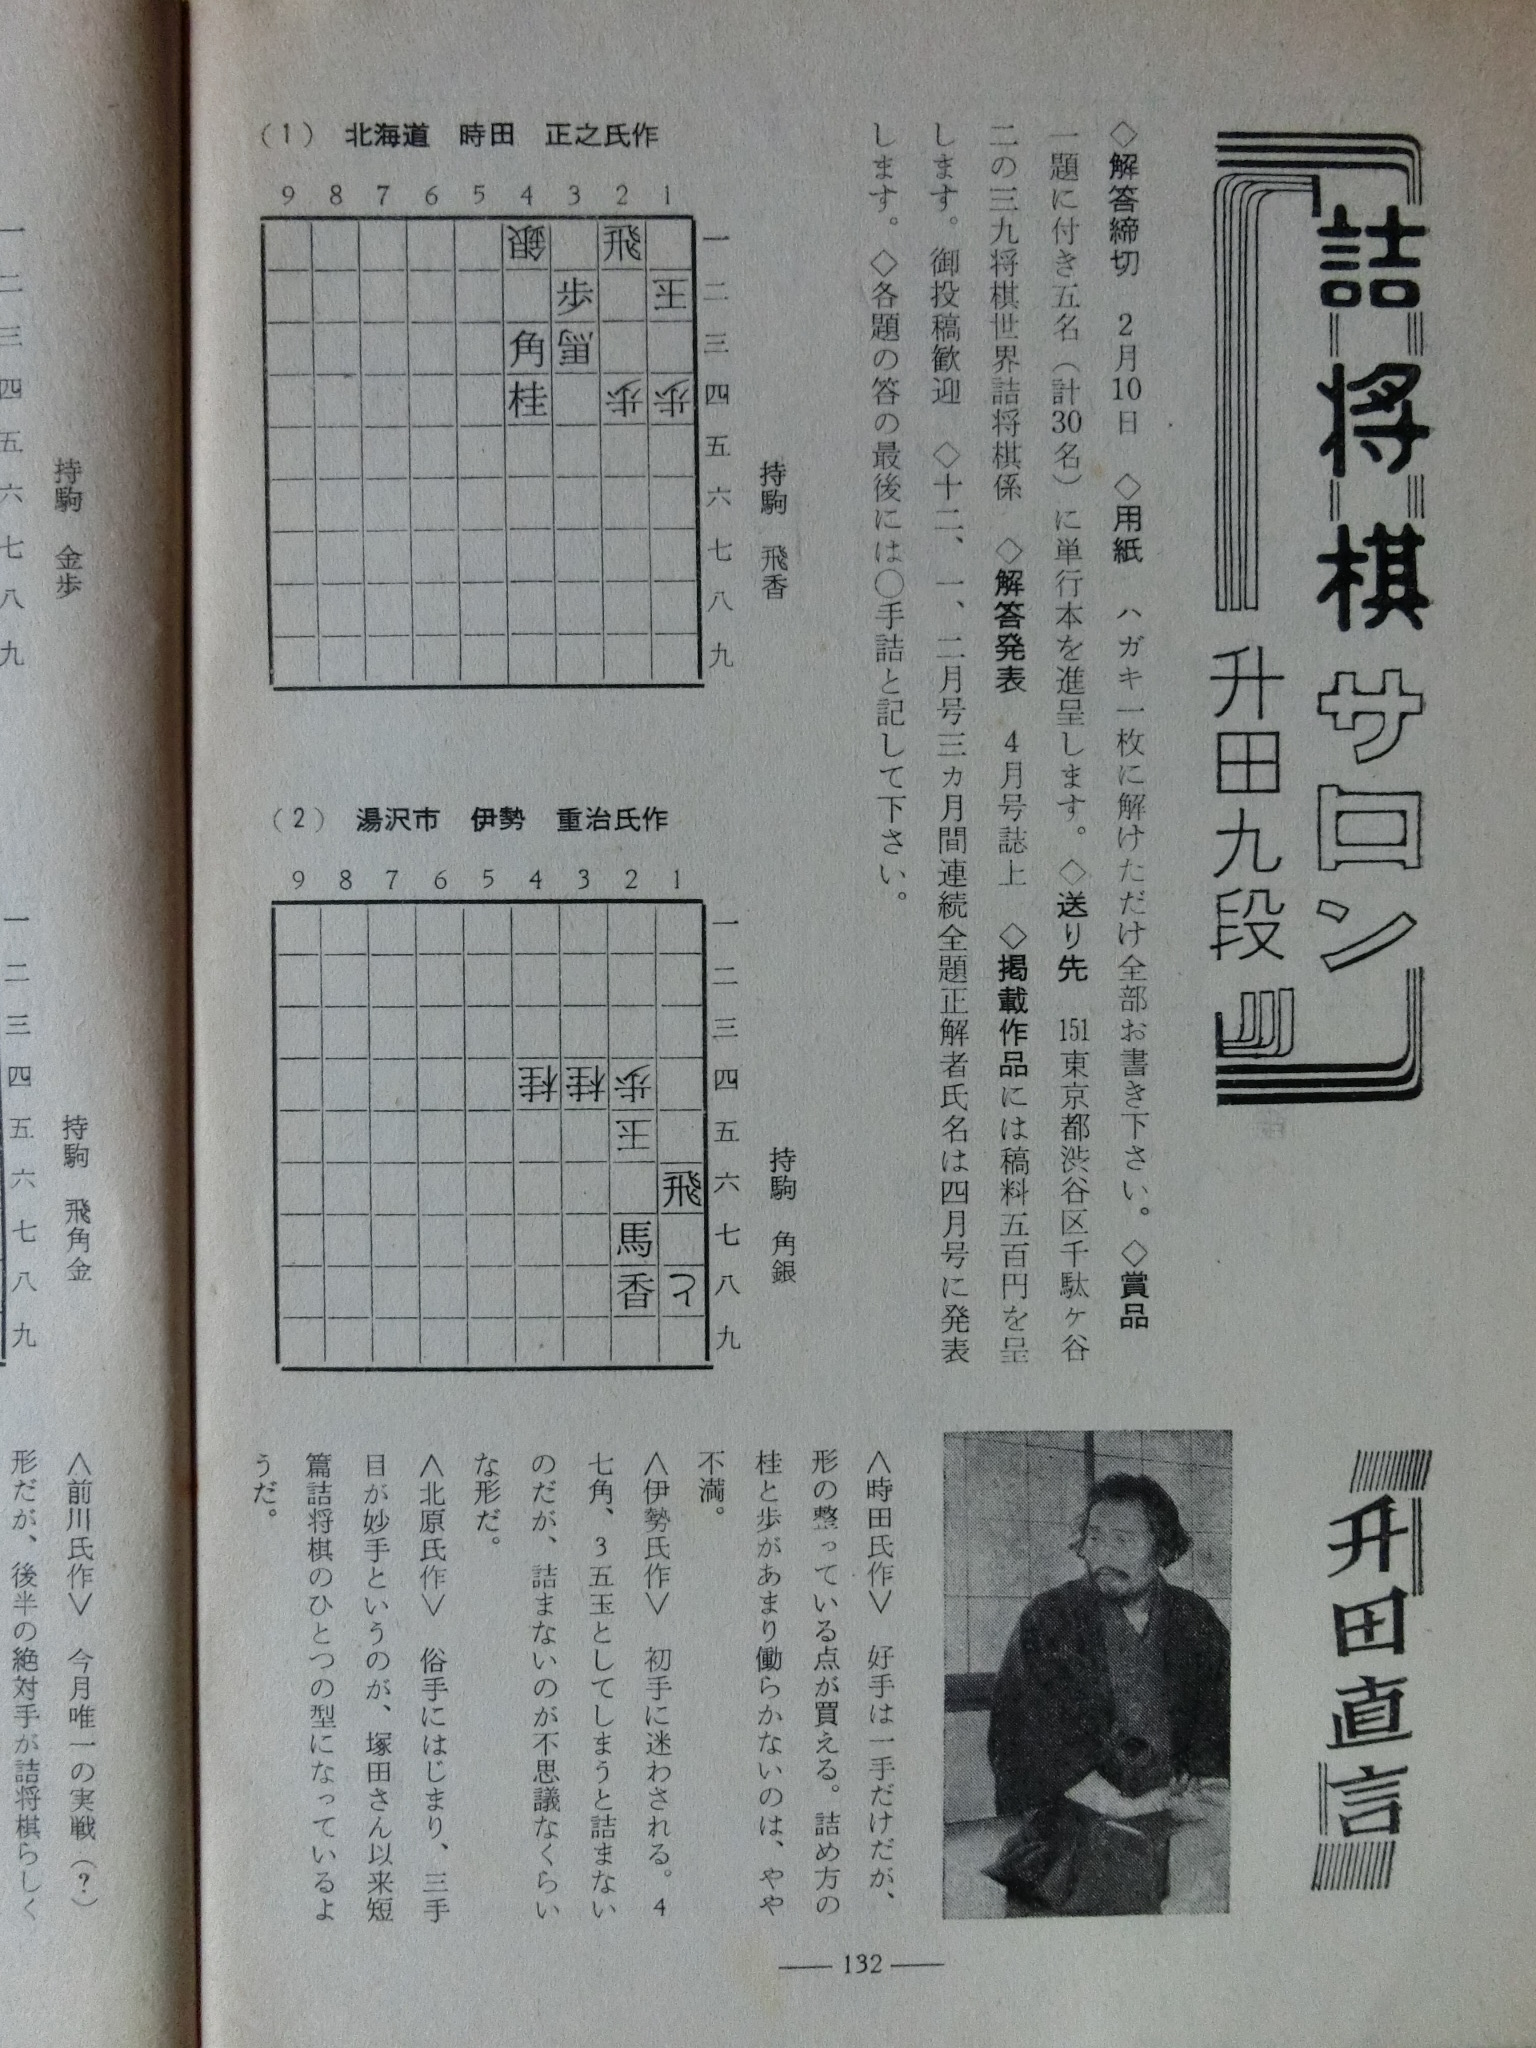 詰将棋サロン
升田九段
◇解答締切　2月10日　◇用紙　ハガキ一枚に解けただけ全部お書き下さい。◇賞品
一題に付き五名（計30名）に単行本を進呈します。◇送り先　151東京都渋谷区千駄ヶ谷
二の三九将棋世界詰将棋係　◇解答発表　4月号誌上　◇掲載作品には稿料五百円を呈
します。御投稿歓迎　◇十二、一、二月号三ヵ月間連続全題正解者氏名は四月号に発表
します。◇各題の答の最後には〇手詰と記して下さい。
（1）　北海道　時田　正之氏作
9 8 7 6 5 4 3 2 1
銀 飛 一
歩 王 二
角 馬 三
桂 歩 歩 四
五
六
七
八
九
持駒　飛香
（2）　湯沢市　伊勢　重治氏作
9 8 7 6 5 4 3 2 1
一
二
三
桂 桂 歩 四
玉 五
飛 六
馬 七
香 と 八
九
持駒　角銀
升田直言
＜時田氏作＞　好手は一手だけだが、
形の整っている点が買える。詰め方の
桂と歩があまり働らかないのは、やや
不満。
＜伊勢氏作＞　初手に迷わされる。4
七角、3五玉としてしまうと詰まない
のだが、詰まないのが不思議なくらい
な形だ。
＜北原氏作＞　俗手にはじまり、三手
目が妙手というのが、塚田さん以来短
篇詰将棋のひとつの型になっているよ
うだ。
132
一
二
三
四
五
六
七
八
九
持駒　金歩
一
二
三
四
五
六
七
八
九
持駒　飛角金
＜前川氏作＞　今月唯一の実戦（？）
形だが、後半の絶対手が詰将棋らしく